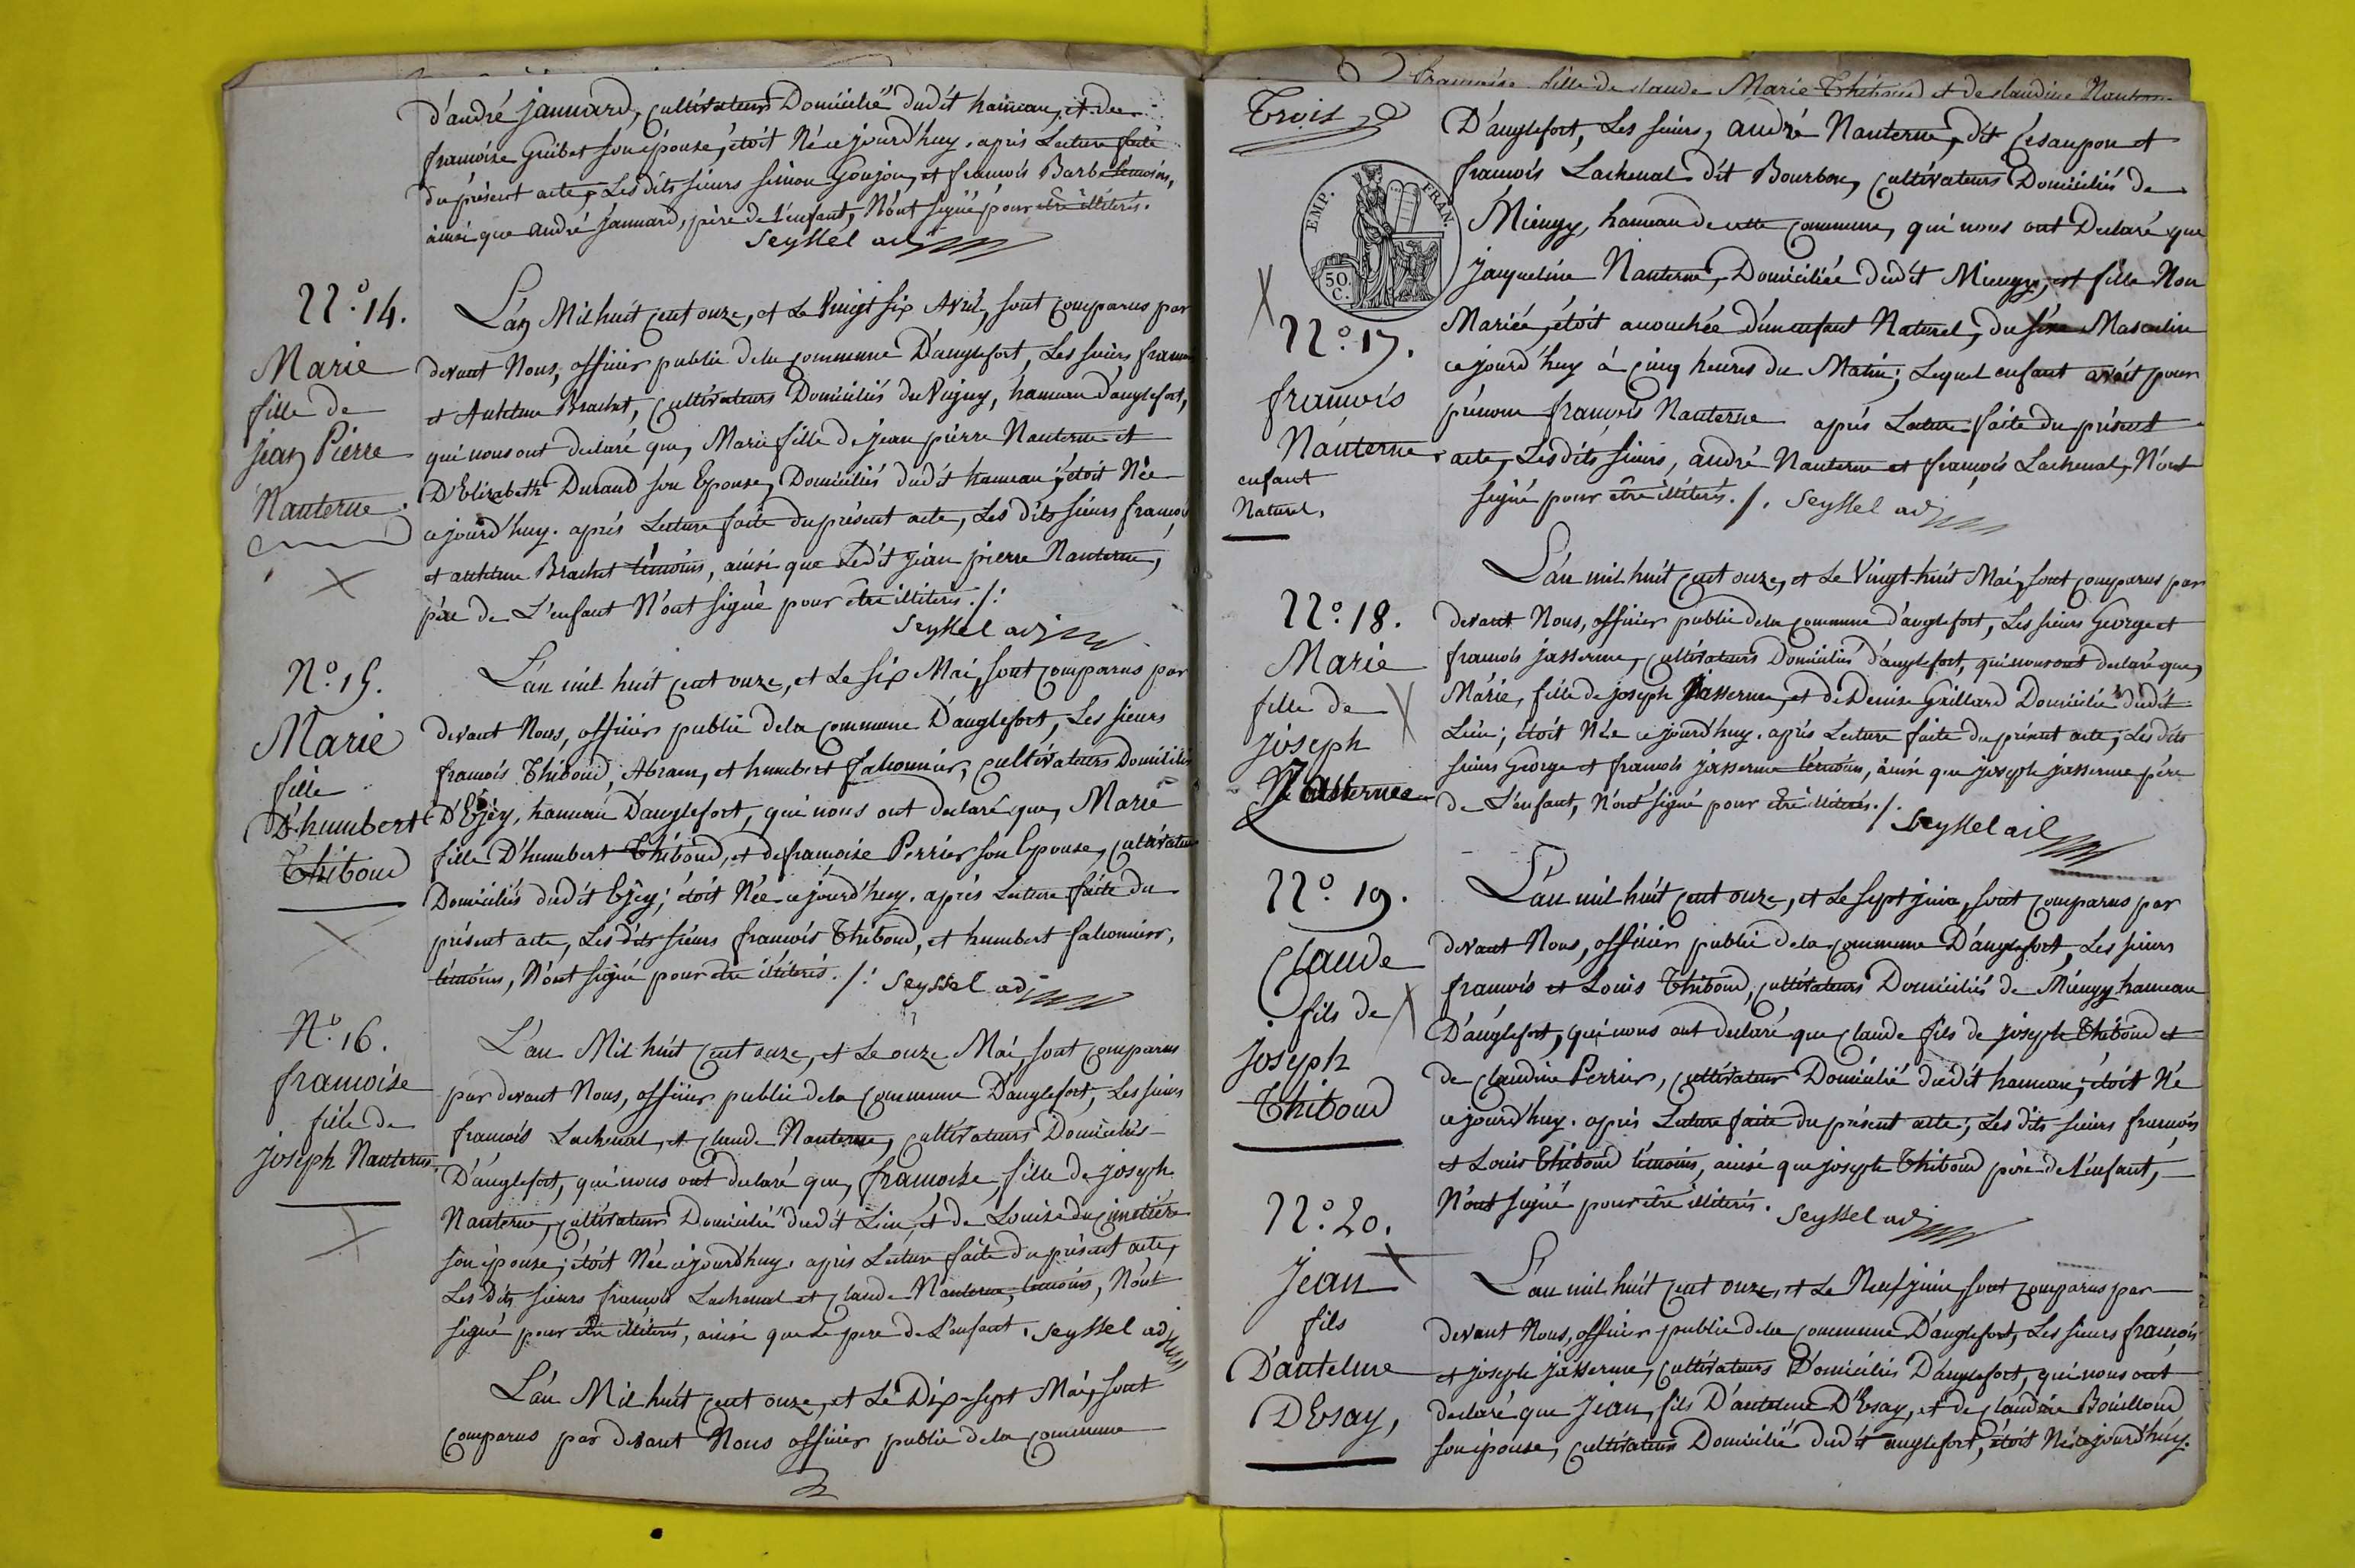 d'andré jannard, cultivateurs Domicilié dudit hameau, et de
francoise Guibet son épouse, étoit Née ce jourd'huy. après Lecture faite
du présent acte, Les dits sieurs simon Goujon, et francois Barbe témoins,
ainsi que andré jannard, père de l'enfant, N'ont signé pour être illiterés.
Seyssel adj
N.o 14.
Marie
fille de
jean Pierre
Nanterne.
L'an Mil huit cent onze, et Le Vingt six Avril, sont comparus par
devant Nous, officier public dela commune D'anglefort, Les sieurs francois
et Antelme Brachet, Cultivateurs Domiciliés de Vigny, hameau d'anglefort,
qui nous ont declaré que, Marie fille de jean pierre Nanterne et
D'Elizabeth Durand son Epouse, Domiciliés dudit hameau; étoit Née
ce jourd'huy. après Lecture faite du présent acte, Les dits sieurs francois
et antelme Brachet témoins, ainsi que Ledit jean pierre Nanterne,
père de L'enfant N'ont signé pour être illiterés ./:
Seyssel adj
N.o 15.
Marie
fille
D'humbert
Thiboud
L'an mil huit cent onze, et Le six Mai, sont comparus par
devant Nous, officier public dela commune D'anglefort, Les sieurs
francois Thiboud, Abram, et humbert falconnier, cultivateurs Domiciliés
D'Ejéy, hameau D'anglefort, qui nous ont declaré que, Marie
fille D'humbert Thiboud, et de francoise Perrier son Epouse, Cultivateurs
Domiciliés dudit Ejéy; étoit Née ce jourd'huy. après Lecture faite du
présent acte, Les dits sieurs francois Thiboud, et humbert falconnier,
témoins, N'ont signé pour être illiterés ./: Seyssel adj
N.o 16.
francoise
fille de
joseph Nanterne.
L'an Mil huit cent onze, et Le onze Mai, sont comparus
par devant Nous, officier public dela commune D'anglefort, Les sieurs
francois Lachenal, et claude Nanterne, cultivateurs Domiciliés
D'anglefort, qui nous ont declaré que, francoise, fille de joseph
Nanterne, cultivateurs Domicilié dudit Lieu, et de Louise du Cimetière
son épouse; étoit Née ce jourd'huy. après Lecture faite du présent acte,
Les Dits sieurs francois Lachenal et claude Nanterne, témoins, N'ont
signé pour être illiterés, ainsi que Le pere de L'enfant. Seyssel adj
L'an Mil huit cent onze, et Le Dix-sept Mai, sont
comparus par devant Nous officier public dela commune
francoise fille de claude Marie Thiboud et de claudine Nanterne
Trois
EMP. FRAN.
50. C.
N.o 17.
francois
Nanterne.
enfant
Naturel.
D'anglefort, Les sieurs, andré Nanterne, dit Cesanpon et
francois Lachenal dit Bourbon, cultivateurs Domiciliés de
Mieugy, hameau de cette commune, qui nous ont Declaré que
jacqueline Nanterne, Domiciliée dudit Mieugy, est fille Non
Mariée, étoit accouchée d'un enfant Naturel, du séxe Masculin
ce jourd'huy à Cinq heures du Matin; Lequel enfant avoit pour
prénom francois Nanterne après Lecture faite du présent
acte, Les dits sieurs, andré Nanterne et francois Lachenal, N'ont
signé pour être illiterés ./. Seyssel adj
N.o 18.
Marie
fille de
joseph
Jasserme
L'an mil huit cent onze, et Le Vingt-huit Mai, sont comparus par
devant Nous, officier public dela commune d'anglefort, Les sieurs George et
francois jasserme, cultivateurs Domiciliés d'anglefort, qui nous ont declaré que,
Marie, fille de joseph jasserme, et de Denise Gaillard Domicilié dudit
Lieu; étoit Née ce jourd'huy. après Lecture faite du présent acte, Les dits
sieurs George et francois jasserme témoins, ainsi que joseph jasserme père
de L'enfant, N'ont signé pour être illiterés ./.
Seyssel adj
N.o 19.
Claude
fils de
joseph
Thiboud
L'an mil huit cent onze, et Le sept juin, sont comparus par
devant Nous, officier public dela commune D'anglefort, Les sieurs
francois et Louis Thiboud, cultivateurs Domiciliés de Mieugy hameau
D'anglefort, qui nous ont declaré que claude fils de joseph Thiboud et
de claudine Perrier, cultivateur Domicilié dudit hameau, étoit Né
ce jourd'huy. après Lecture faite du présent acte; Les dits sieurs francois
et Louis Thiboud témoins, ainsi que joseph Thiboud père de L'enfant,
N'ont signé pour être illiterés. Seyssel adj
N.o 20.
Jean
fils
D'antelme
D'Esay,
L'an mil huit cent onze, et Le Neuf juin, sont comparus par
devant Nous, officier public dela commune D'anglefort, Les sieurs francois
et joseph jasserme, cultivateurs Domiciliés D'anglefort, qui nous ont
declaré que Jean, fils D'antelme D'Esay, et de Claudine Bouilloud
son épouse, cultivateurs Domicilié dudit anglefort, étoit Né ce jourd'huy.